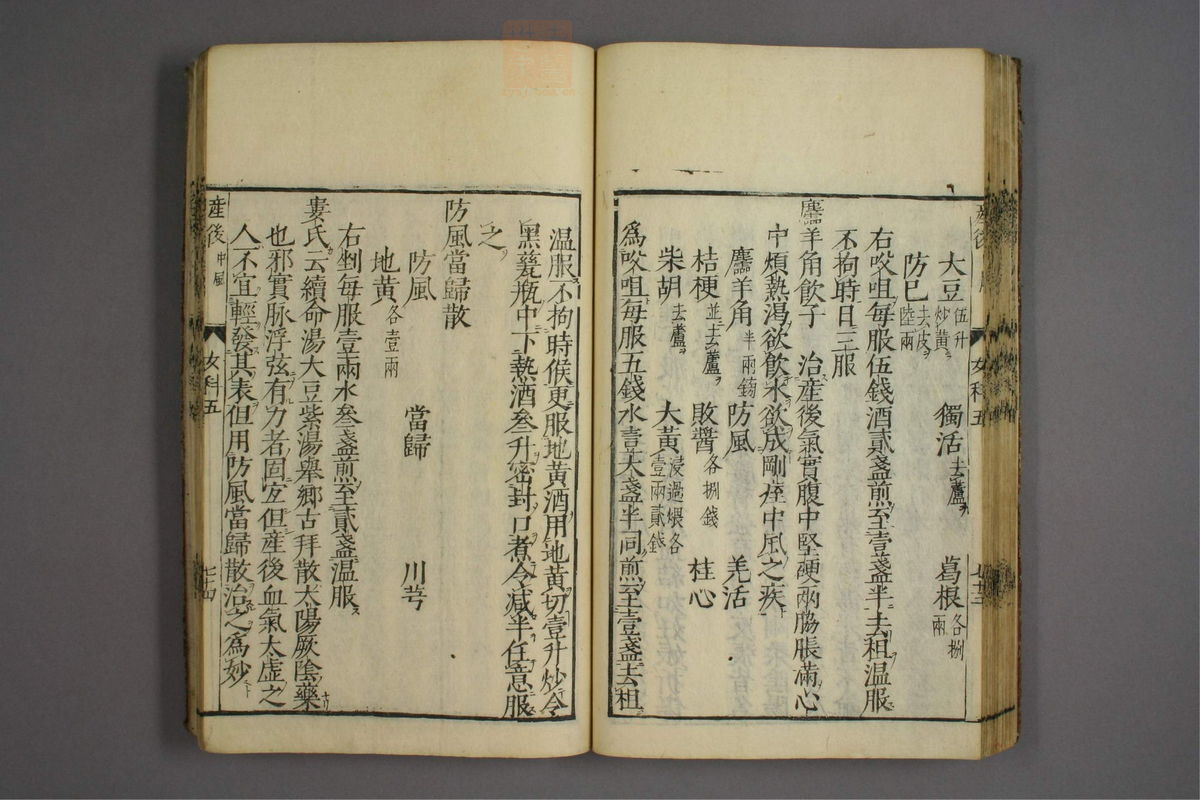 大豆伍升炒黄 獨活去蘆 葛根各捌兩
防已去皮陸兩
右㕮咀每服伍錢酒貳盞煎至壹盞半去柤温服
不拘時日三服
麢羊角飲子 治產後氣實腹中堅硬兩脇脹滿心
中煩熱渴欲飲水欲成剛痓中風之疾
麢羊角半兩鎊 防風 羌活
桔梗並去蘆 敗醬各捌錢 桂心
柴胡去蘆 大黃浸過煨各壹兩貳錢
爲㕮咀每服五錢水壹大盞半同煎至壹盞去柤
温服不拘時候更服地黄酒用地黄切壹升炒令
黑甆瓶中下熱酒叁升密封口煮令減半任意服
之
防風當歸散
防風 當歸 川芎
地黄各壹兩
右剉每服壹兩水叁盞煎至貳盞温服
婁氏云續命湯大豆紫湯舉鄉古拜散太陽厥陰藥
也邪實脉浮弦有力者固宐但產後血氣太虛之
人不宜輕發其表但用防風當歸散治之爲妙
產後中風 女科五 七十四
女科五 七十三